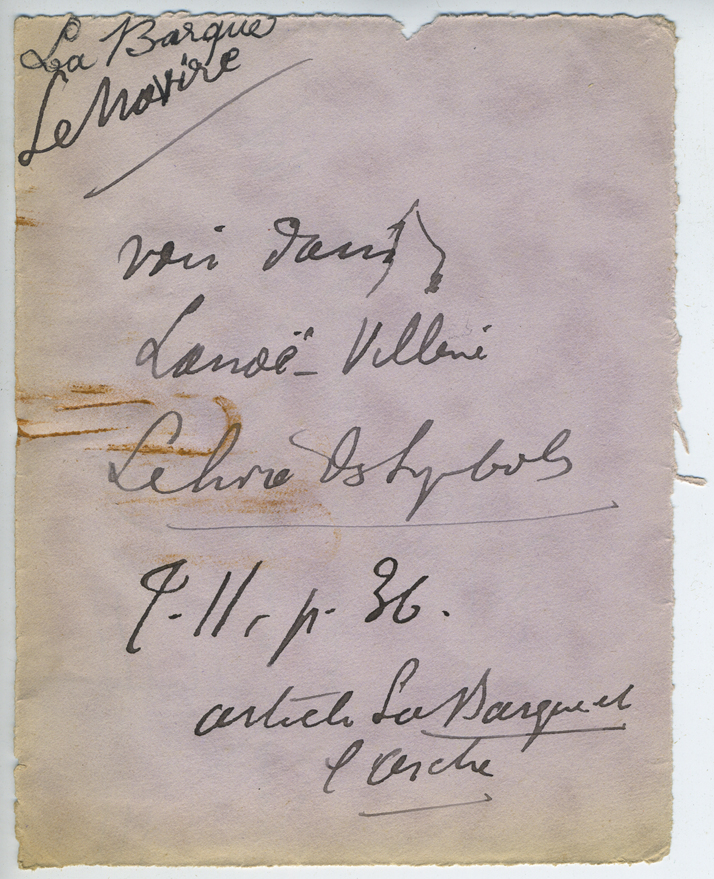 La Barque
Le Navire
voir dans
Lanoë-Villène
Le livre des Symboles
T. II, p. 36.
article La Barque et
l'arche